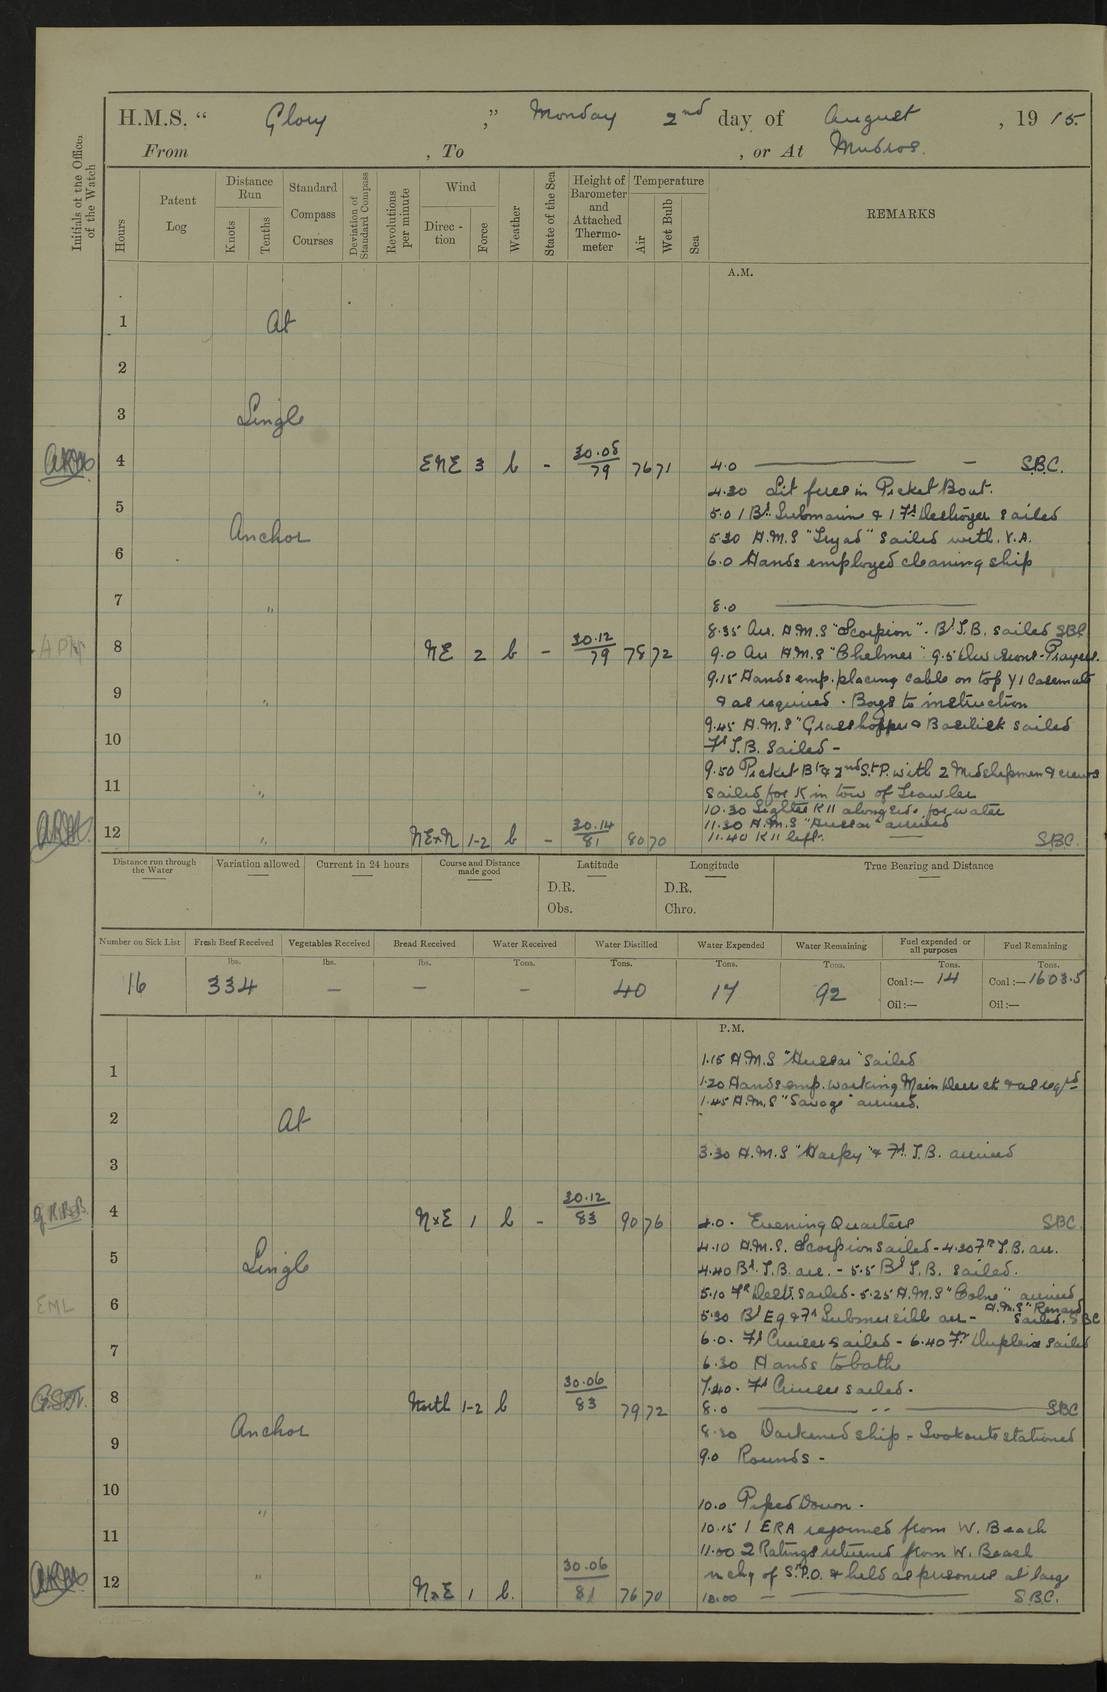 H.M.S. “ Glory ,” Monday 2nd day of August , 1915.
From , To , or At Mudros.
Initials of the Officer of the Watch
Hours
Patent Log
Distance Run
Knots
Tenths
Standard Compass Courses
Deviation of Standard Compass
Revolutions per minute
Wind
Direction
Force
Weather
State of the Sea
Height of Barometer and Attached Thermometer
Temperature
Air
Wet Bulb
Sea
REMARKS
A.M.
1 At
2
3 Single
4 ENE 3 b - 30.08 79 76 71 4.0 — S.B.C.
4.30 Lit fires in Picket Boat.
5 5.0 1 Bd. Submarine & 1 Fd. Destroyer sailed
Anchor 5.30 H.M.S "Tryad" sailed with V.A.
6 6.0 Hands employed cleaning ship
7 " 8.0 —
8.35 Arr. H.M.S "Scorpion". Bd T.B. sailed SBC
8 NE 2 b - 30.12 79 78 72 9.0 Arr H.M.S "Chelmer" 9.5 Divisions - Prayers.
9 " 9.15 Hands emp. placing cable on top Y1 Casemate
& as required. Boys to instruction
9.45 H.M.S "Grasshopper & Basilisk sailed
10 Fd T.B. Sailed -
9.50 Picket Bt & 2nd St. P. with 2 Midshipmen & crews
11 " sailed for K in tow of Trawler
10.30 Lighter K11 alongside for water
11.30 H.M.S "Hussar" arrived
12 " NExN 1-2 b - 30.14 81 80 70 11.40 K11 left. — SBC.
Distance run through the Water
Variation allowed
Current in 24 hours
Course and Distance made good
Latitude
D.R.
Obs.
Longitude
D.R.
Chro.
True Bearing and Distance
Number on Sick List 16
Fresh Beef Received lbs. 334
Vegetables Received lbs. -
Bread Received lbs. -
Water Received Tons. -
Water Distilled Tons. 40
Water Expended Tons. 17
Water Remaining Tons. 92
Fuel expended or all purposes Tons. Coal :— 14 Oil :—
Fuel Remaining Tons. Coal :— 1603.5 Oil :—
P.M.
1.15 H.M.S "Hussar" Sailed
1 1.20 Hands emp. working Main Derrick & as reqd
1.45 H.M.S "Savage" arrived.
2 At
3 3.30 H.M.S "Harpy" & Fd. T.B. arrived
4 NxE 1 b - 30.12 83 90 76 4.0. Evening Quarters SBC
5 Single 4.10 H.M.S. Scorpion sailed - 4.30 Fr T.B. arr.
4.40 Bd. T.B. arr. - 5.5 Bd T.B. sailed.
EML 6 5.10 Fr Destr. sailed - 5.25 H.M.S "Colne" arrived
5.30 Bd E9 & Fd Submersible arr - H.M.S "Renard sailed. SBC
7 6.0. Fd Cruiser sailed - 6.40 Fr Dupleix sailed
6.30 Hands to bathe
8 North 1-2 b 30.06 83 79 72 7.40. Fd Cruiser sailed.
8.0 — SBC
Anchor 8.30 Darkened ship - Lookouts stationed
9 9.0 Rounds -
10 10.0 Piped Down.
11 " 10.15 1 ERA rejoined from W. Beach
11.00 2 Ratings returned from W. Beach
12 " NxE 1 b. 30.06 81 76 70 in chg of S.P.O. & held as prisoners at large
12.00 — S.B.C.